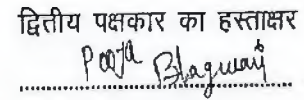 द्वितीय पक्षकार का हस्ताक्षर
Pooja Bhagwani